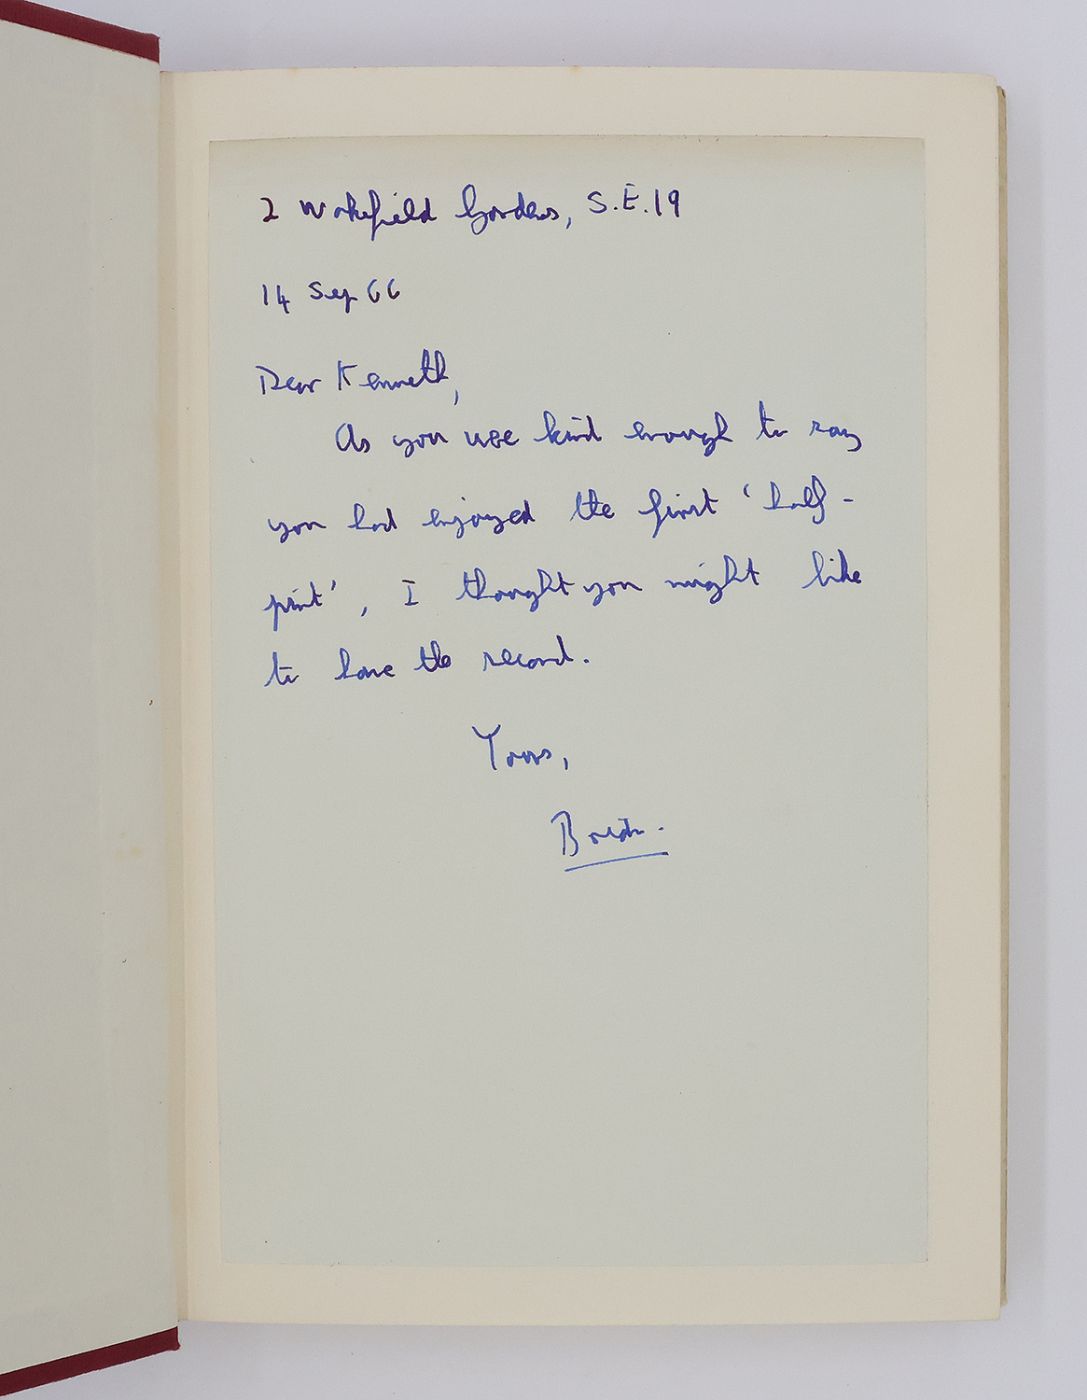 2 Wakefield Gardens, S.E.19
14 Sep 66
Dear Kenneth,
As you were kind enough to say
you had enjoyed the first 'half-
pint', I thought you might like
to have the second.
Yours,